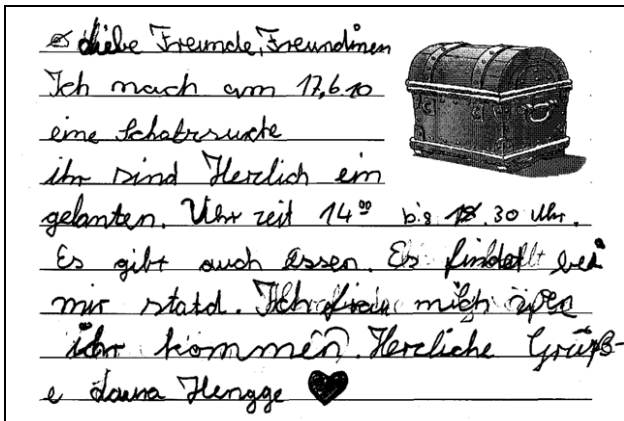 liebe Freunde, Freundinen
Ich mach am 17.6.10
eine Schatzsuche
ihr sind Herzlich ein
gelanten. Uhr zeit 14⁰⁰ bis 18.30 Uhr.
Es gibt auch Essen. Es findet bei
mir statd. Ich freu mich
ihr kommen. Herzliche Grüß-
e Hengge